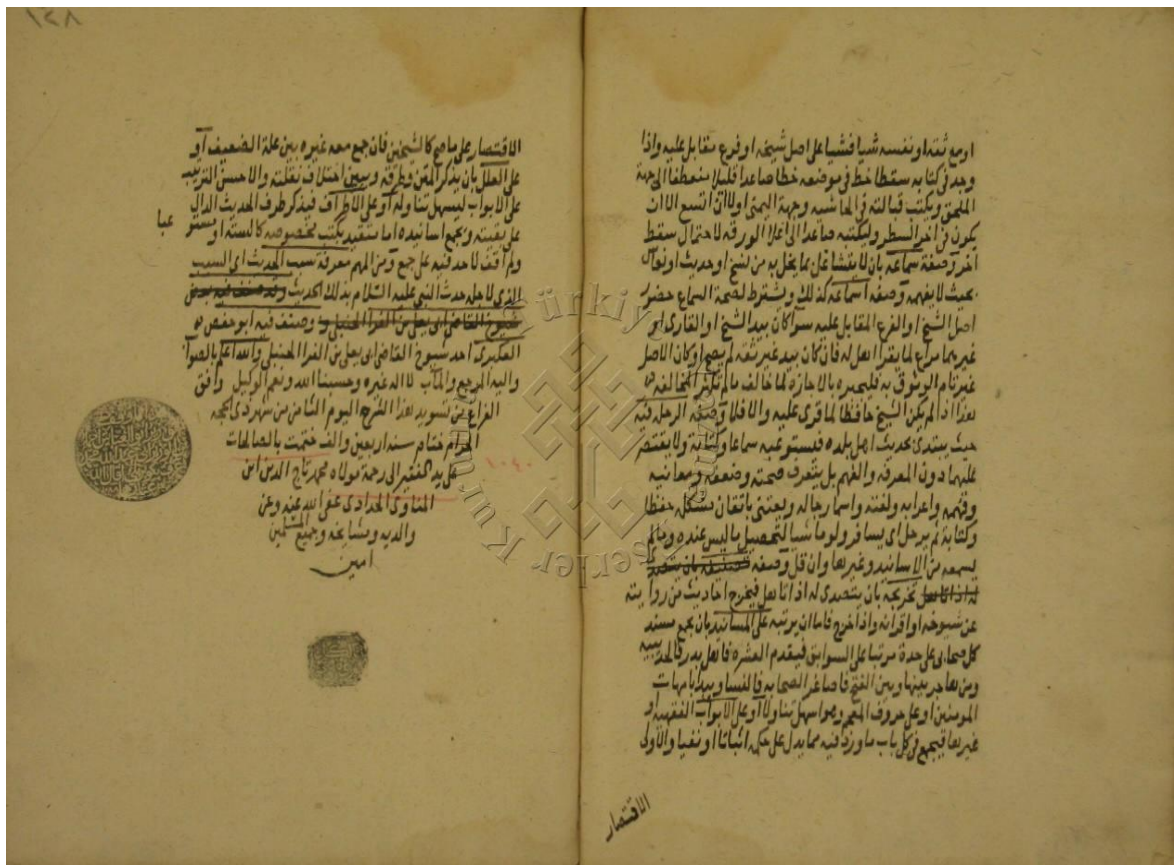 او مع ثقة او نفسه شيا فشيا على اصل شيخه او فرع مقابل عليه واذا
وجد في كتابه سقطا خط في موضعه خطا صاعدا قليلا منعطفا الى جهة
الملحق ويكتب قبالته في الحاشيه وجهة اليمنى اولا ان اتسع الا ان
يكون في اخر السطر وليكتبه صاعدا الى اعلا الورقه لاحتمال سقط
آخر وصفة سماعه بان لا يتشاغل بما يخل به من نسخ او حديث او نعاس
بحيث لا يفهمه وصفة اسماعه كذلك ويشترط لصحة السماع حضور
اصل الشيخ او الفرع المقابل عليه سوا كان بيد الشيخ او القارى او
غيرهما مراع لما يقرا اهل له فان كان بيد غير ثقه لم يصح او كان الاصل
غير تام الوثوق به فليجبره بالاجازه لما خالف مالم تكثر المخالفه
هذا اذا لم يكن الشيخ حافظا لما قرى عليه والا فلا وصفة الرحل فيه
حيث يبتدى بحديث اهل بلده فيستوعبه سماعا وكتابة ولا يقتصر
عليهما دون المعرفه والفهم بل يتعرف صحته وضعفه ومعانيه
وفقهه واعرابه ولغته واسما رجاله ويعتنى باتقان مشكله حفظا
وكتابة ثم يرحل اى يسافر ولو ماشيا لتحصيل ما ليس عنده وما لم
يسمعه من الاسانيد وغيرها وان قل وصفة تصنيفه بان يتصدى
له اذا تاهل تخريجه بان يتصدى له اذا تاهل فيخرج احاديث من روايته
عن شيوخه او اقرانه واذا خرج فاما ان يرتبه على المسانيد بان يجمع مسند
كل صحابى على حدة مرتبا على السوابق فيقدم العشره فاهل بدر فالحديبيه
ومن هاجر بينها وبين الفتح فاصاغر الصحابه فالنسا ويبدا بامهات
المومنين او على حروف المعجم وهو اسهل تناولا او على الابواب الفقهيه او
غيرها فيجمع في كل باب ما ورد فيه مما يدل على حكمه اثباتا او نفيا والاولى
الاقتصار
١٤٨
الاقتصار على ما صح كالشيخين فان جمع معه غيره بين علة الضعيف او
على العلل بان يذكر المتن وطرقه ويبين اختلاف نقلته والاحسن الترتيب
على الابواب ليسهل تناوله او على الاطراف فيذكر طرف الحديث الدال
على بقيته ويجمع اسانيده اما متقيد بكتب مخصوصه كالسته او مستوعبا
ولم اقف لاحد فيه على جمع ومن المهم معرفة سبب الحديث اى السبب
الذى لاجله حدث النبى عليه السلام بذلك الحديث وقد صنف فيه بعض
شيوخ القاضى ابى يعلى بن الفرا الحنبلى وصنف فيه ابو حفص
العكبرى احد شيوخ القاضى ابى يعلى بن الفرا الحنبلى والله اعلم بالصواب
واليه المرجع والمآب لا اله غيره وحسبنا الله ونعم الوكيل وافق
الفراغ من تسويد هذا الشرح اليوم الثامن من شهر ذى الحجه
الحرام ختام سنه اربعين والف ختمت بالصالحات
١٠٤٠
على يد الفقير الى رحمة مولاه محمد تاج الدين ابن
المناوى الحدادى عفى الله عنه وعن
والديه ومشايخه وجميع المسلمين
امين